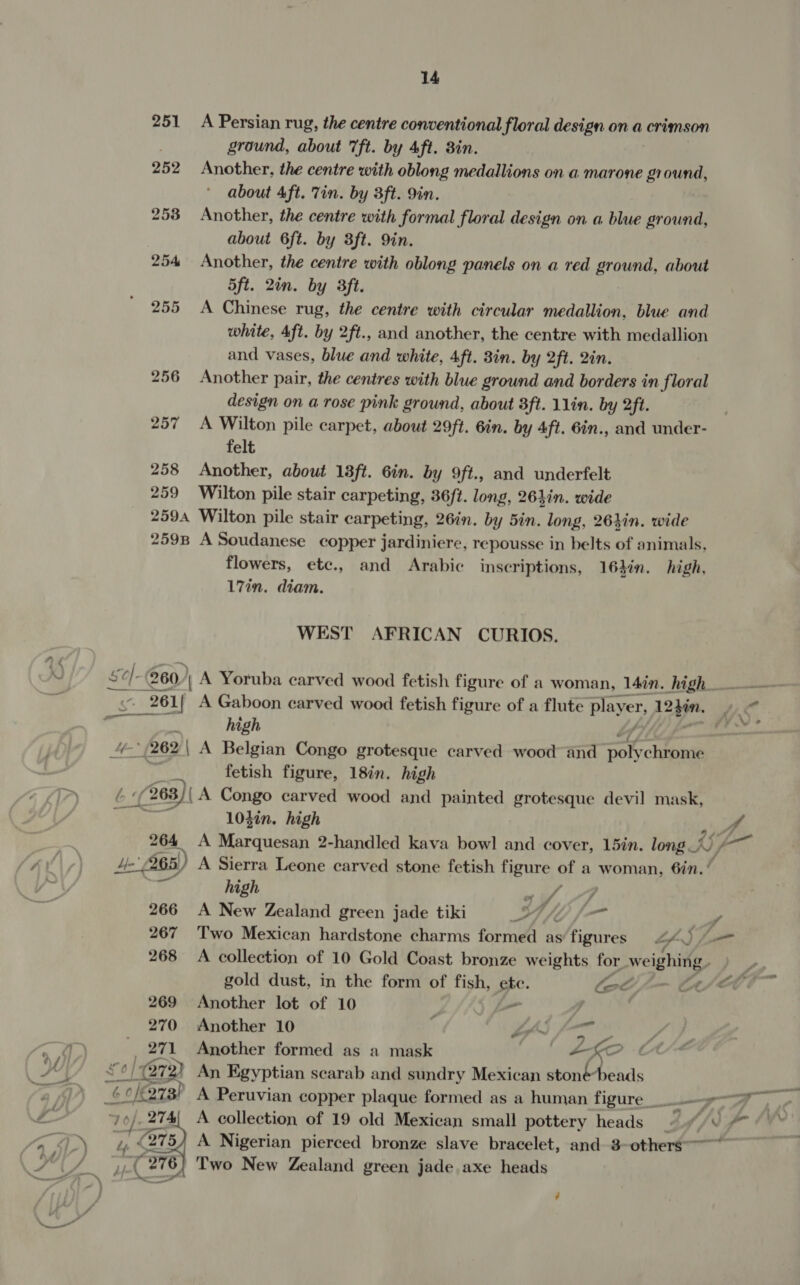 14
251 A Persian rug, the centre conventional floral design on a crimson
ground, about 7ft. by 4ft. 3in.
252 Another, the centre with oblong medallions on a marone ground,
about 4ft. 7in. by 3ft. 9in.
253 Another, the centre with formal floral design on a blue ground,
about 6ft. by 3ft. 9in.
254 Another, the centre with oblong panels on a red ground, about
5ft. 2in. by 3ft.
255 A Chinese rug, the centre with circular medallion, blue and
white, 4ft. by 2ft., and another, the centre with medallion
and vases, blue and white, 4ft. 3in. by 2ft. 2in.
256 Another pair, the centres with blue ground and borders in floral
design on a rose pink ground, about 3ft. 11in. by 2ft.
257 A Wilton pile carpet, about 29ft. 6in. by 4ft. 6in., and under-
felt
258 Another, about 13ft. 6in. by 9ft., and underfelt
259 Wilton pile stair carpeting, 36ft. long, 26½in. wide
259A Wilton pile stair carpeting, 26in. by 5in. long, 26½in. wide
259B A Soudanese copper jardiniere, repousse in belts of animals,
flowers, etc., and Arabic inscriptions, 16½in. high,
17in. diam.
WEST AFRICAN CURIOS.
260 A Yoruba carved wood fetish figure of a woman, 14in. high
261 A Gaboon carved wood fetish figure of a flute player, 12½in.
high
262 A Belgian Congo grotesque carved wood and polychrome
fetish figure, 18in. high
263 A Congo carved wood and painted grotesque devil mask,
10½in. high
264 A Marquesan 2-handled kava bowl and cover, 15in. long
265 A Sierra Leone carved stone fetish figure of a woman, 6in.
high
266 A New Zealand green jade tiki
267 Two Mexican hardstone charms formed as figures
268 A collection of 10 Gold Coast bronze weights for weighing
gold dust, in the form of fish, etc.
269 Another lot of 10
270 Another 10
271 Another formed as a mask
272 An Egyptian scarab and sundry Mexican stone beads
273 A Peruvian copper plaque formed as a human figure
274 A collection of 19 old Mexican small pottery heads
275 A Nigerian pierced bronze slave bracelet, and 3 others
276 Two New Zealand green jade axe heads